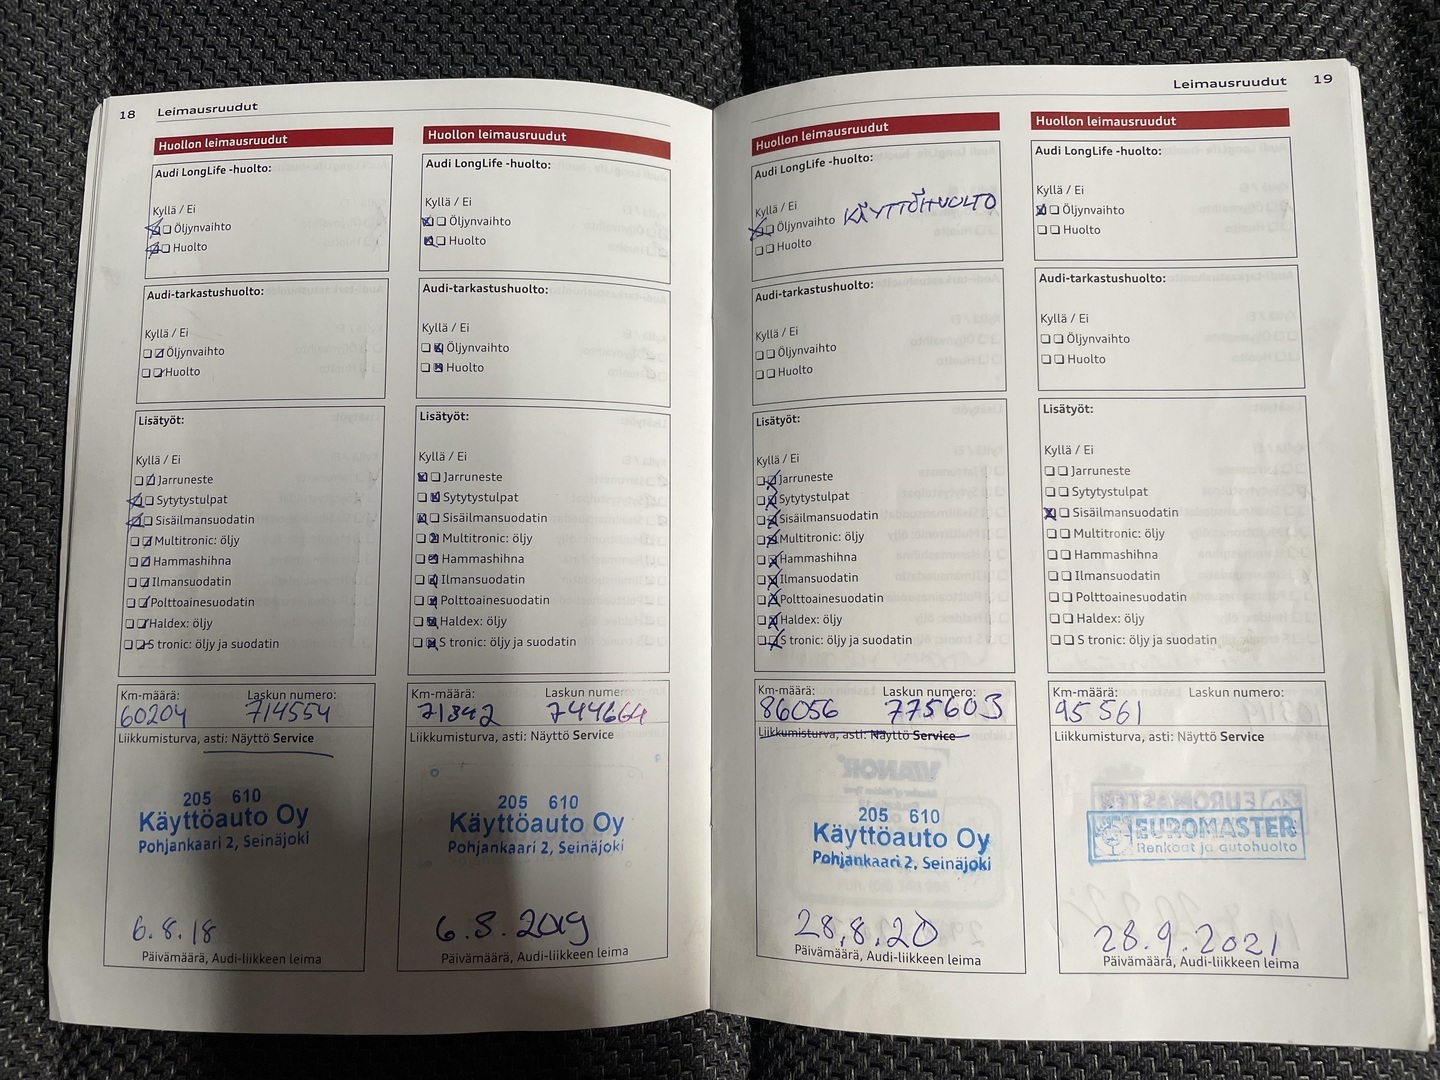 18 Leimausruudut
Huollon leimausruudut
Audi LongLife -huolto:
Kyllä / Ei
Öljynvaihto
Huolto
Audi-tarkastushuolto:
Kyllä / Ei
Öljynvaihto
Huolto
Lisätyöt:
Kyllä / Ei
Jarruneste
Sytytystulpat
Sisäilmansuodatin
Multitronic: öljy
Hammashihna
Ilmansuodatin
Polttoainesuodatin
Haldex: öljy
S tronic: öljy ja suodatin
Km-määrä: Laskun numero:
60204 714554
Liikkumisturva, asti: Näyttö Service
205 610
Käyttöauto Oy
Pohjankaari 2, Seinäjoki
6.8.18
Päivämäärä, Audi-liikkeen leima
Huollon leimausruudut
Audi LongLife -huolto:
Kyllä / Ei
Öljynvaihto
Huolto
Audi-tarkastushuolto:
Kyllä / Ei
Öljynvaihto
Huolto
Lisätyöt:
Kyllä / Ei
Jarruneste
Sytytystulpat
Sisäilmansuodatin
Multitronic: öljy
Hammashihna
Ilmansuodatin
Polttoainesuodatin
Haldex: öljy
S tronic: öljy ja suodatin
Km-määrä: Laskun numero:
71342 744664
Liikkumisturva, asti: Näyttö Service
205 610
Käyttöauto Oy
Pohjankaari 2, Seinäjoki
6.8.2019
Päivämäärä, Audi-liikkeen leima
Leimausruudut 19
Huollon leimausruudut
Audi LongLife -huolto:
Kyllä / Ei
Öljynvaihto KÄYTTÖHUOLTO
Huolto
Audi-tarkastushuolto:
Kyllä / Ei
Öljynvaihto
Huolto
Lisätyöt:
Kyllä / Ei
Jarruneste
Sytytystulpat
Sisäilmansuodatin
Multitronic: öljy
Hammashihna
Ilmansuodatin
Polttoainesuodatin
Haldex: öljy
S tronic: öljy ja suodatin
Km-määrä: Laskun numero:
86056 775603
Liikkumisturva, asti: Näyttö Service
205 610
Käyttöauto Oy
Pohjankaari 2, Seinäjoki
28.8.20
Päivämäärä, Audi-liikkeen leima
Huollon leimausruudut
Audi LongLife -huolto:
Kyllä / Ei
Öljynvaihto
Huolto
Audi-tarkastushuolto:
Kyllä / Ei
Öljynvaihto
Huolto
Lisätyöt:
Kyllä / Ei
Jarruneste
Sytytystulpat
Sisäilmansuodatin
Multitronic: öljy
Hammashihna
Ilmansuodatin
Polttoainesuodatin
Haldex: öljy
S tronic: öljy ja suodatin
Km-määrä: Laskun numero:
95 561
Liikkumisturva, asti: Näyttö Service
EUROMASTER
Renkaat ja autohuolto
28.9.2021
Päivämäärä, Audi-liikkeen leima